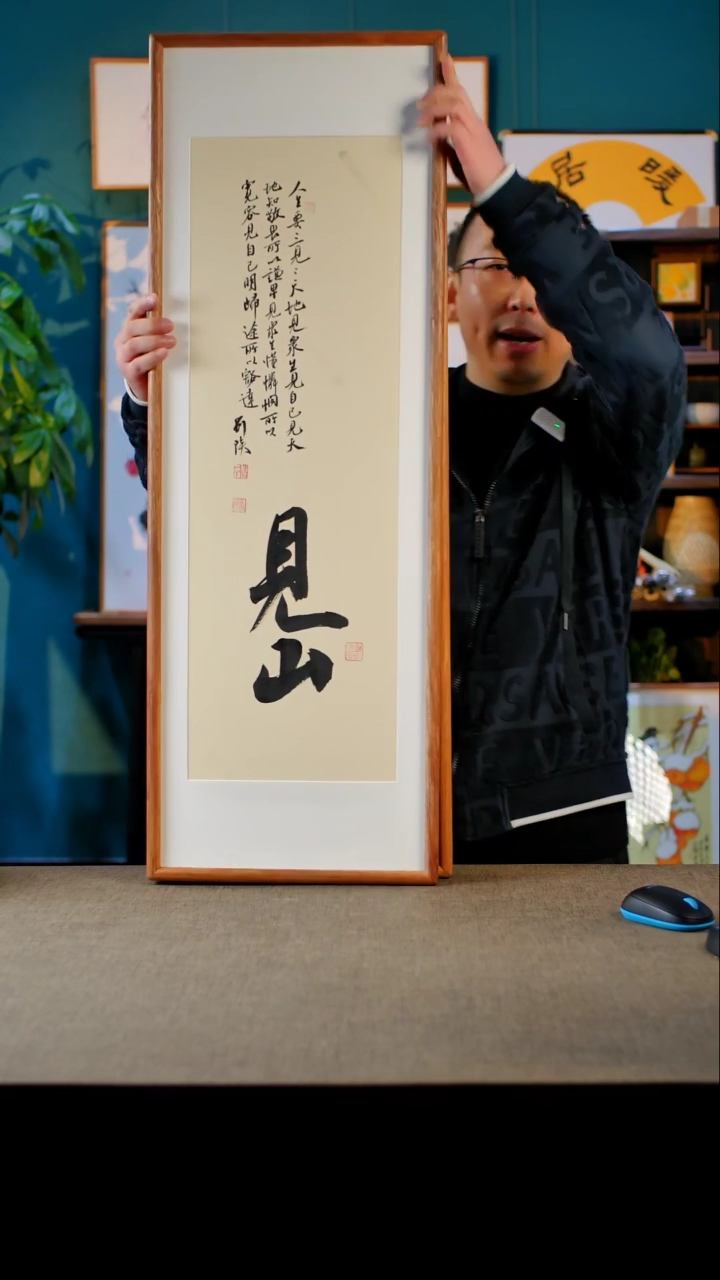 人生要三見〻天地見衆生見自己見天
地知敬畏所以謙卑見衆生懂憐憫所以
寬容見自己明歸途所以豁達
見山
暖